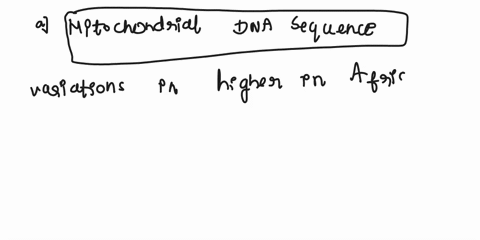 a] Mitochondrial DNA Sequence
variations in higher in Afric